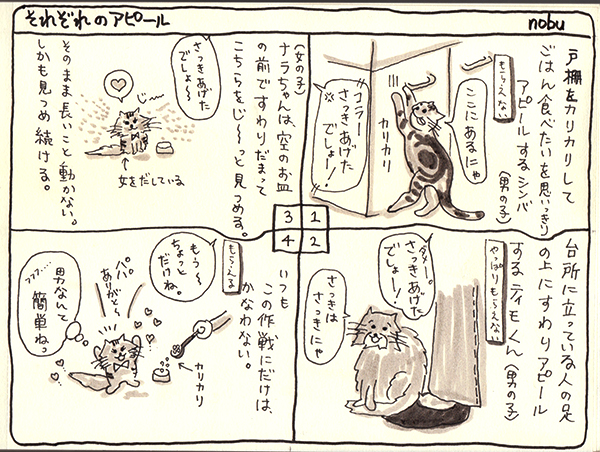 それぞれのアピール
nobu
戸棚をカリカリして
ごはん食べたいを思いっきり
アピールするシンバ
(男の子)
もらえない
ここにあるにゃ
カリカリ
コラー
さっきあげた
でしょー!
1
台所に立っている人の足
の上にすわりアピール
するティモくん(男の子)
やっぱりもらえない
さっきあげた
でしょー!
さっきは
さっきにゃ
2
(女の子)
ナラちゃんは、空のお皿
の前ですわりだまって
こちらをじ〜っと見つめる。
さっきあげた
でしょ〜
じー
女をだしている
そのまま長いこと動かない。
しかも見つめ続ける。
3
いつも
この作戦にだけは、
かなわない。
もらえる
もぅ〜
ちょっと
だけね。
カリカリ
パパ
ありがと〜
男なんて
簡単ねっ
4